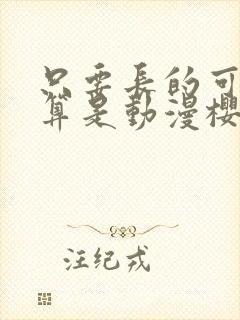 只要長的可
算是動漫櫻
汪纪戎